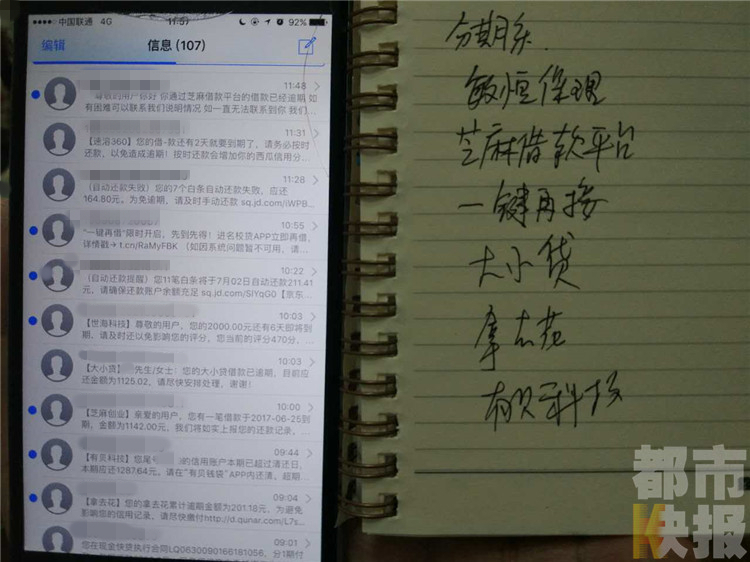 中国联通 4G
11:57
92%
编辑
信息 (107)
11:48
尊敬的用户你好 你通过芝麻借款平台的借款已经逾期 如
有困难可以联系我们说明情况 如一直无法联系到你 我们...
11:31
【速洛360】您的借-款还有2天就要到期了，请务必按时
还款，以免造成逾期！按时还款会增加你的西瓜信用分...
11:28
(自动还款失败）您的7个白条自动还款失败，应还
164.80元。为免逾期，请及时手动还款 sq.jd.com/iWPB...
10:55
“一键再借”限时开启，先到先得！进名校贷APP立即再借，
详情戳→ t.cn/RaMyFBK （如因系统问题暂不可用，请...
10:22
(自动还款提醒）您11笔白条将于7月02日自动还款211.41
元，请确保还款账户余额充足 sq.jd.com/SlYqG0【京东...
10:03
【世海科技】尊敬的用户，您的2000.00元还有6天即将到
期，请及时还以免影响您的评分，您当前的评分470分，...
10:03
【大小贷】 先生/女士！您的大小贷借款已逾期，目前应
还金额为1125.02，请尽快安排处理，谢谢！
10:00
【芝麻创业】亲爱的用户，您有一笔借款于2017-06-25到
期，金额为1142.00元，我们将如实上报您的还款记录，...
09:44
【有贝科技】您尾号 的信用账户本期已超过清还日，
本期应还1287.64元。请在“有贝钱袋”APP内还清，超期...
09:04
【拿去花】您的拿去花累计逾期金额为201.18元，为避免
影响您的信用记录，请尽快缴付http://d.qunar.com/L7s...
09:01
您在现金快贷执行合同LQ0630090166181056，分1期付
分期乐.
敏恒保理
芝麻借款平台
一键再接
大小贷
拿去花
有贝科技
都市
快报